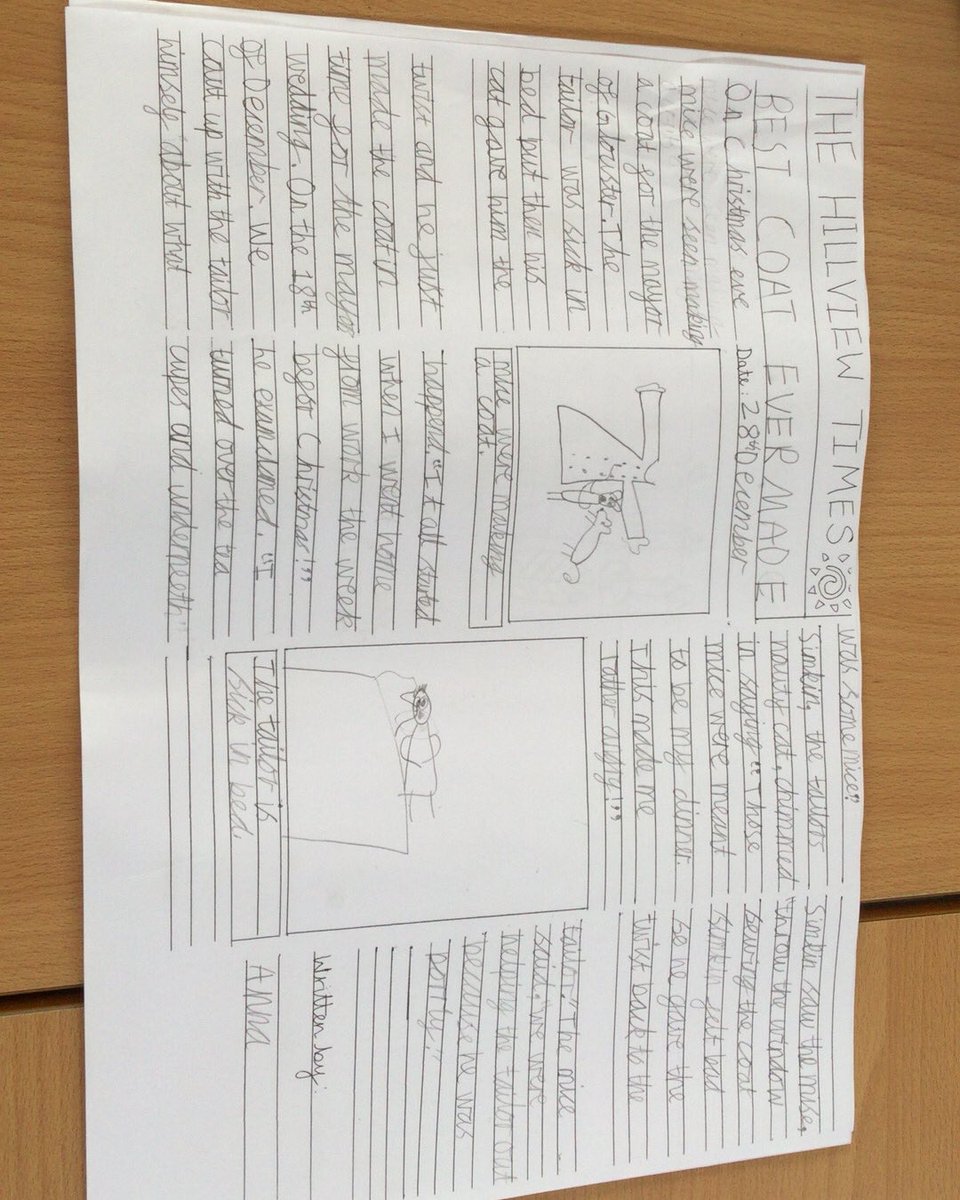 THE HILLVIEW TIMES
BEST COAT EVER MADE
On Christmas eve
Date: 28th December
mice were seen making
a coat for the mayor
of Glouster. The
tailor was sick in
bed but then his
cat gave him the
Mice were making
a coat.
twist and he just
made the coat on
time for the mayor
wedding. On the 18th
of December. We
caut up with the tailor
himself about what
happend. "It all started
when I went home
from work the week
befor Christmas!"
he exanclamed. "I
turned over the tea
cups and underneeth
was some mice."
Simkin, the tailors
nauty cat, chimmed
in saying "Those
mice were meant
to be my dinner.
This made me
rather angry!"
The tailor is
sick in bed.
Simkin saw the mise,
throw the window
sewing the coat
Simkin felt bad
se he gave the
twist back to the
tailor. "The mice
said, "we were
helping the tailor out
because he was
poorly."
Written by:
Anna